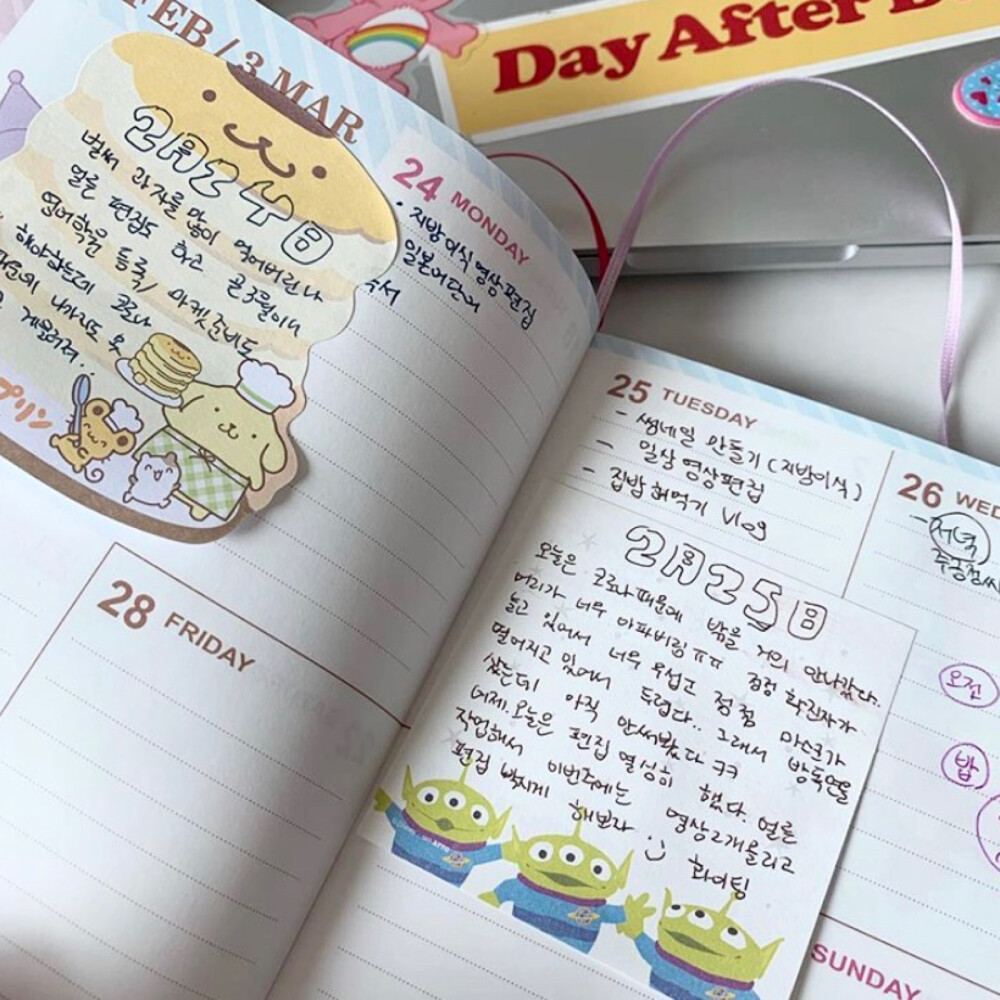 FEB / 3 MAR
2월 24일
벌써 과자를 많이 먹어버린 나
얼른 편집도 하고 곧 3월이니
영어학원 등록, 마켓준비도
해야하는데 코로나
때문에 나가지도 못
게을러져..
プリン
24 MONDAY
· 지방이식 영상 편집
일본어단어
독서
28 FRIDAY
Day After D
25 TUESDAY
- 썸네일 만들기 (지방이식)
- 일상 영상편집
- 집밥 해먹기 Vlog
2월 25일
오늘은 코로나때문에 밖을 거의 안나갔다..
머리가 너무 아파버림 ㅠㅠ 점점 확진자가
늘고 있어서 너무 무섭고 점점 마스크가
떨어지고 있어서 두렵다.. 그래서 방독면을
샀는데 아직 안써봤다 ㅋㅋ
어제. 오늘은 편집 열심히 했다. 얼른
작업해서 이번주에는 영상 2개올리고
편집 빡시게 해보자 :)
화이팅
26 WED
- 저녁
오전
밥
SUNDAY